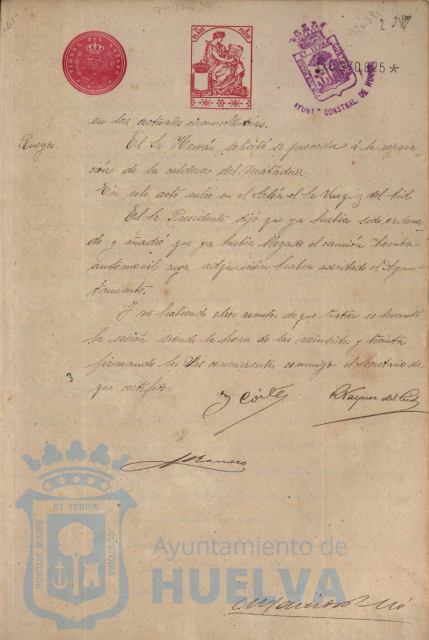 AYUNT° CONSTNAL DE HUELVA
en las actuales circunstancias.
Ruegos.
El Sr. Hernán solicitó se proceda á la repara-
ción de la caldera del Matadero.
En este acto entró en el Salón el Sr. Vazquez del Cid
El Sr. Presidente dijo que ya había sido ordena-
do y añadió que ya había llegado el camión bomba
automovil cuya adquisición había acordado el Ayun-
tamiento.
Y no habiendo otros asuntos de que tratar se levantó
la sesión siendo la hora de las veintidos y treinta
firmando los Sres concurrentes conmigo el Secretario de
que certifico
3
J Cortes
R Vazquez del Cid
PORTUS MARIS ET TERRAE CUSTODIA
Ayuntamiento de
HUELVA